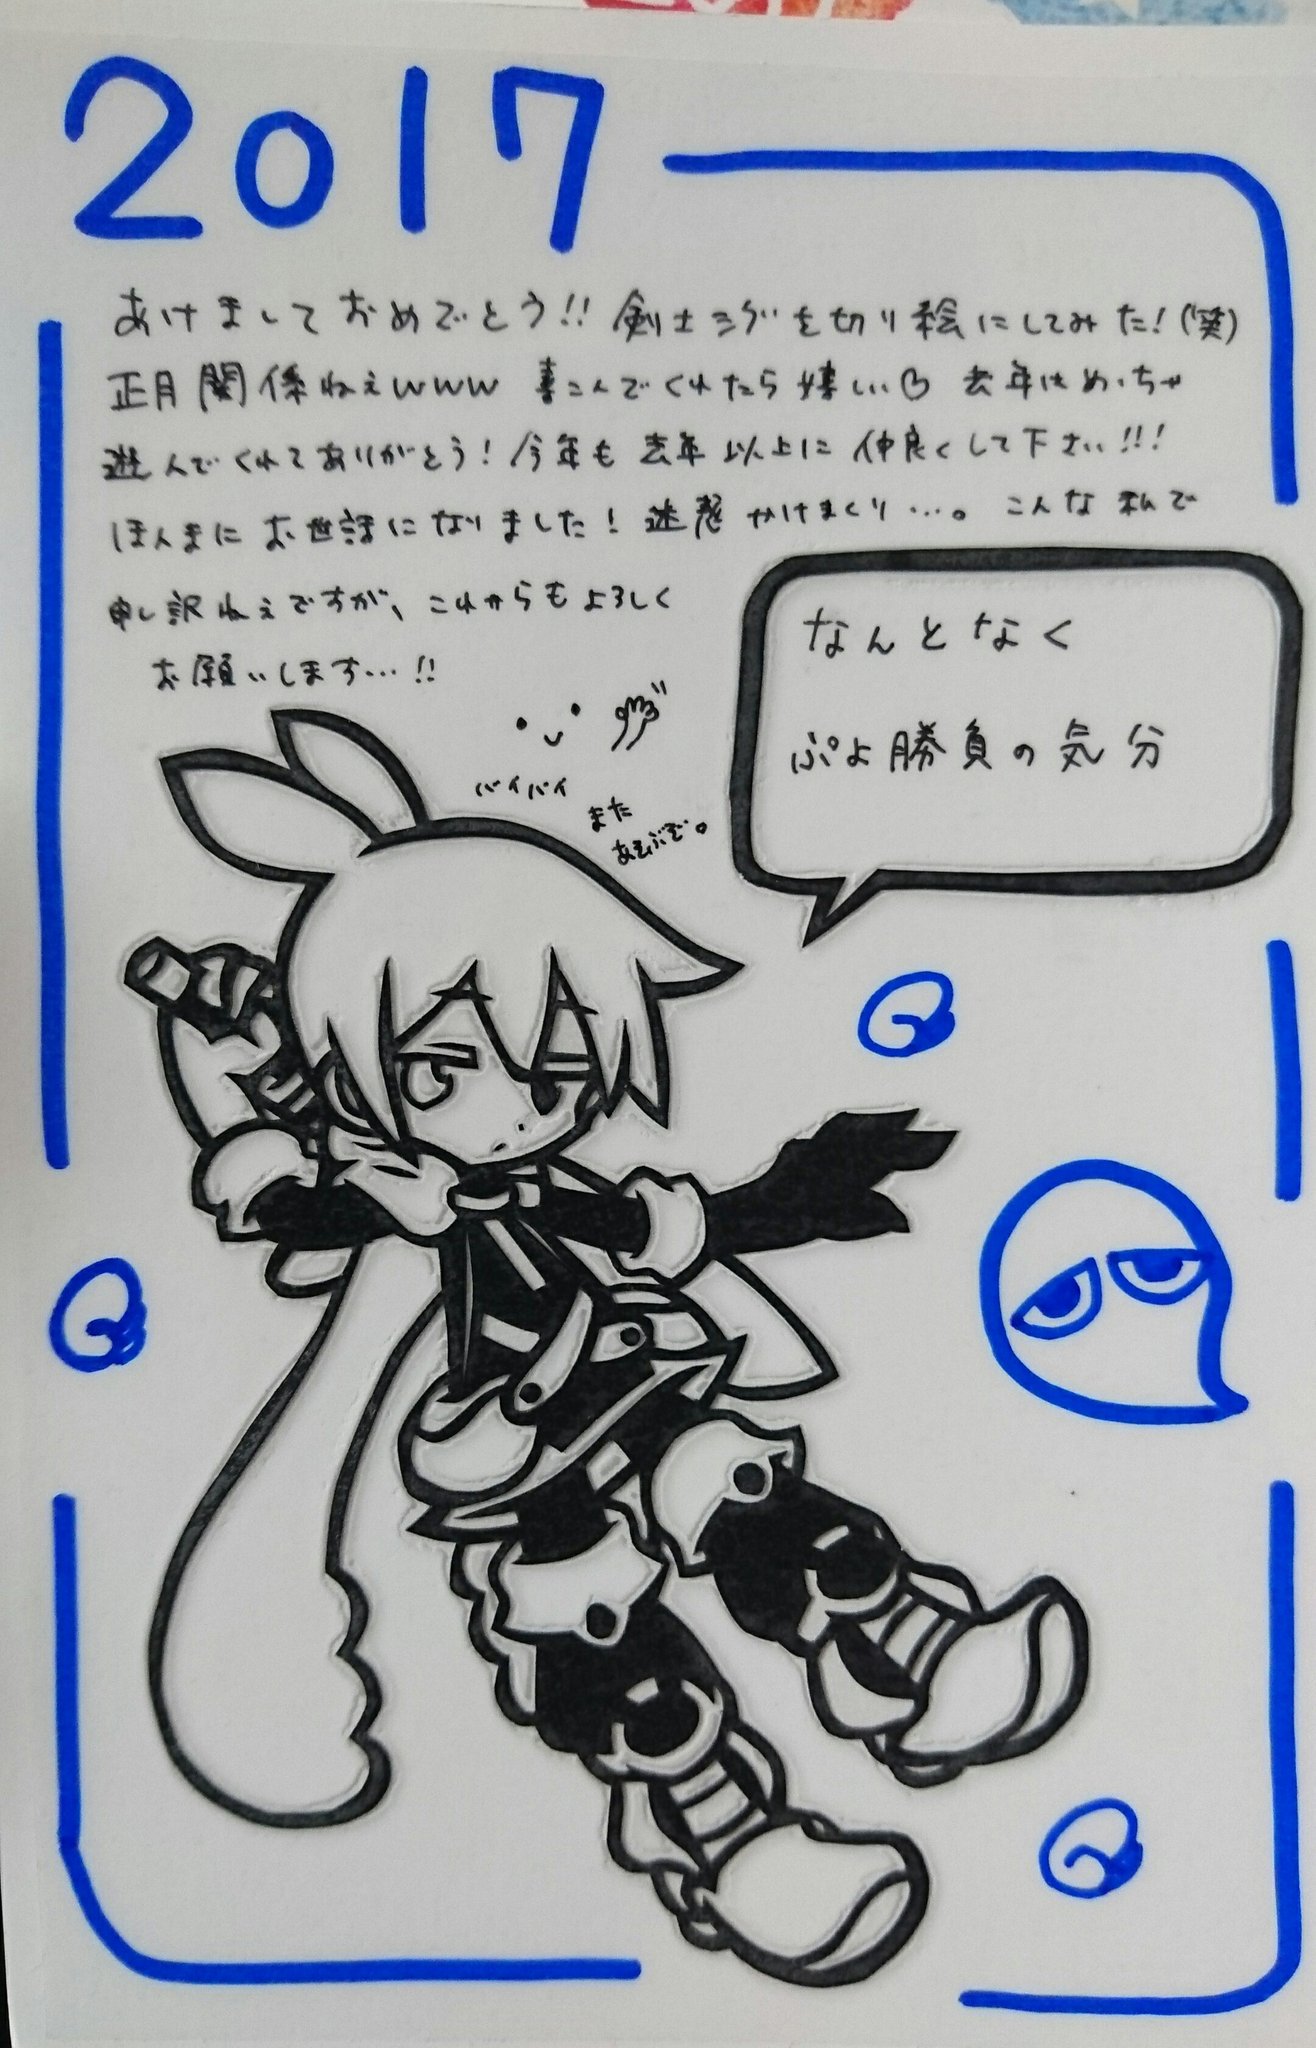 2017
あけましておめでとう!! 剣士シグを切り絵にしてみた!(笑)
正月関係ねぇwww 喜こんでくれたら嬉しい♡ 去年はめっちゃ
遊んでくれてありがとう! 今年も去年以上に仲良くして下さい!!!
ほんまにお世話になりました! 迷惑かけまくり…。こんな私で
申し訳ねぇですが、これからもよろしく
お願いします…!!
バイバイ
また
あそぶぞ。
なんとなく
ぷよ勝負の気分